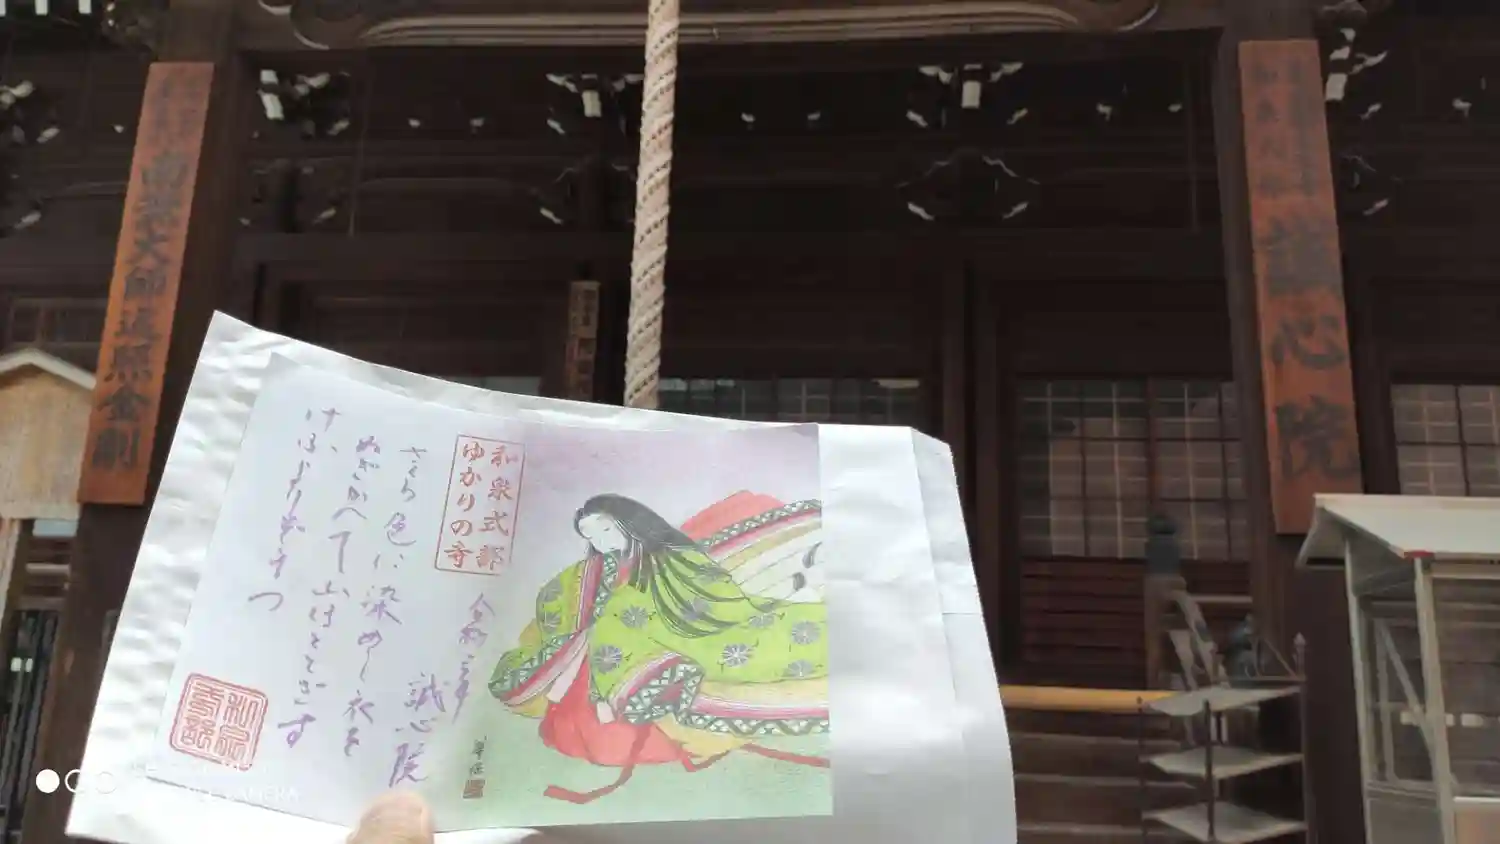 南無大師遍照金剛
誠心院
和泉式部
ゆかりの寺
さくら色に染めし衣を
ぬぎかへて山ほとゝぎす
けふよりぞまつ
誠心院
和泉
式部